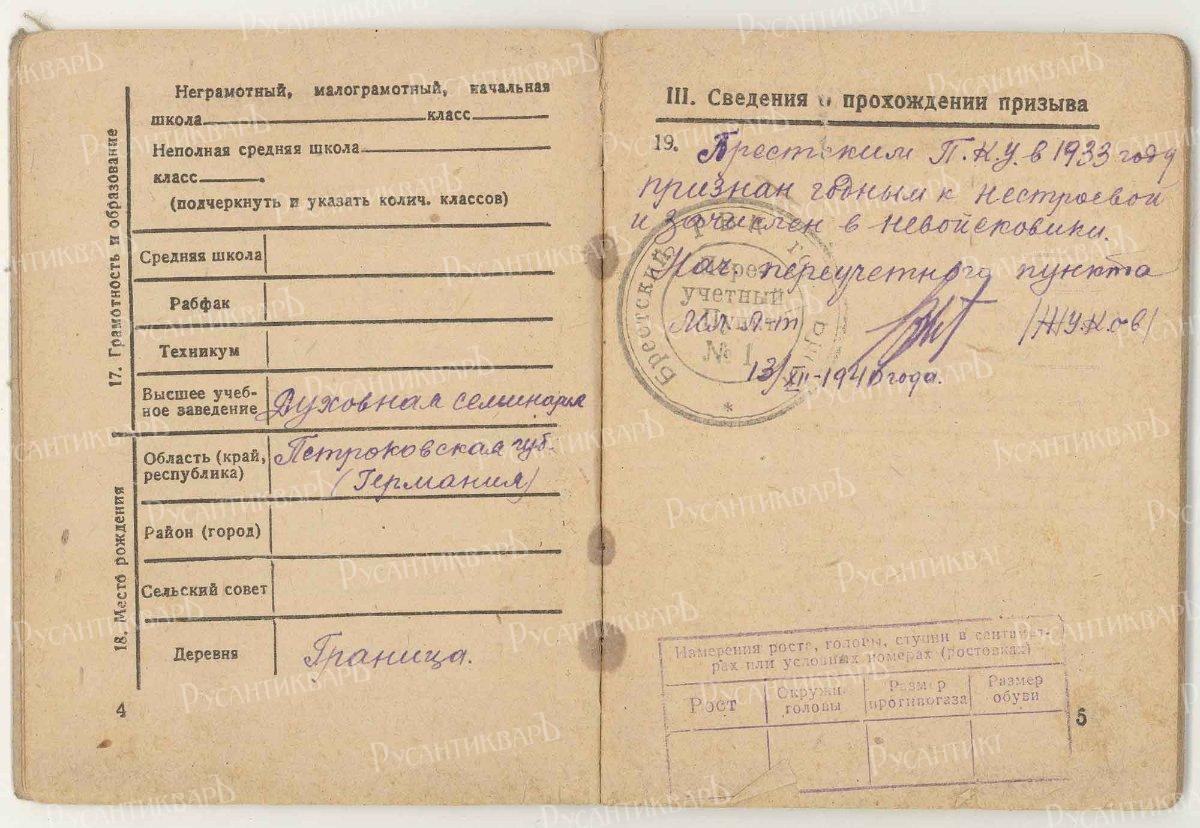 17. Грамотность и образование
Неграмотный, малограмотный, начальная
школа класс
Неполная средняя школа
класс .
(подчеркнуть и указать колич. классов)
Средняя школа
Рабфак
Техникум
Высшее учеб-
ное заведение Духовная семинария
18. Место рождения
Область (край, Петроковская губ.
республика) (Германия)
Район (город)
Сельский совет
Деревня Граница.
4
III. Сведения о прохождении призыва
19. Брестским П.К.У. в 1933 году
признан годным к нестроевой
и зачислен в невойсковики.
Нач. переучетного пункта
Мл. л-т /Жуков/
13/XII-1940 года.
Брестский РВК
Пере
учетный
Пункт
№ 1
*
Измерения роста, головы, ступни в сентимет-
рах или условных номерах (ростовках)
Рост
Окружн. головы
Размер противогаза
Размер обуви
5
РусантикварЪ